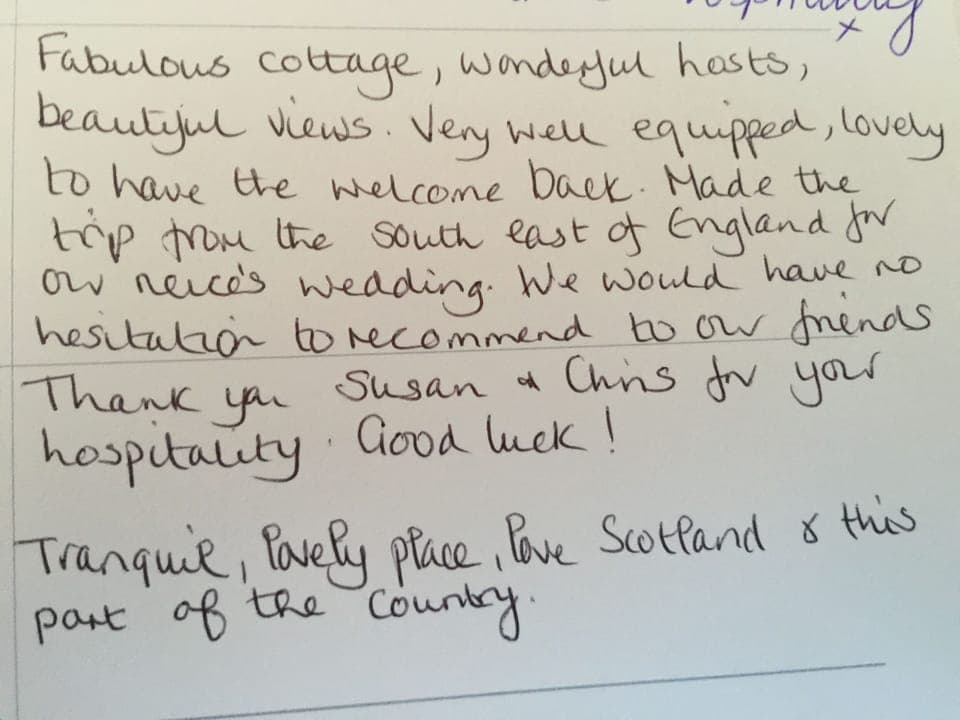 x
Fabulous cottage, wonderful hosts,
beautiful views. Very well equipped, lovely
to have the welcome back. Made the
trip from the south east of England for
our neice's wedding. We would have no
hesitation to recommend to our friends
Thank you Susan & Chris for your
hospitality. Good luck!
Tranquil, lovely place, love Scotland & this
part of the country.